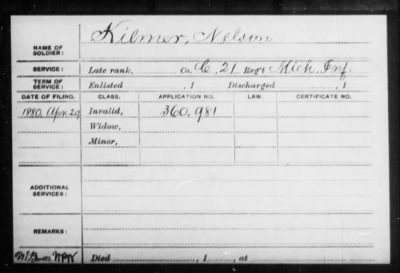 Kilmer, Nelson
NAME OF
SOLDIER:
SERVICE: Late rank, Co. C, 21 Reg't Mich. Inf.
TERM OF
SERVICE: Enlisted , 1 Discharged , 1
DATE OF FILING. CLASS. APPLICATION NO. LAW. CERTIFICATE NO.
1880, Apr. 29 Invalid, 360,981
Widow,
Minor,
ADDITIONAL
SERVICES:
REMARKS:
Died , 1 , at